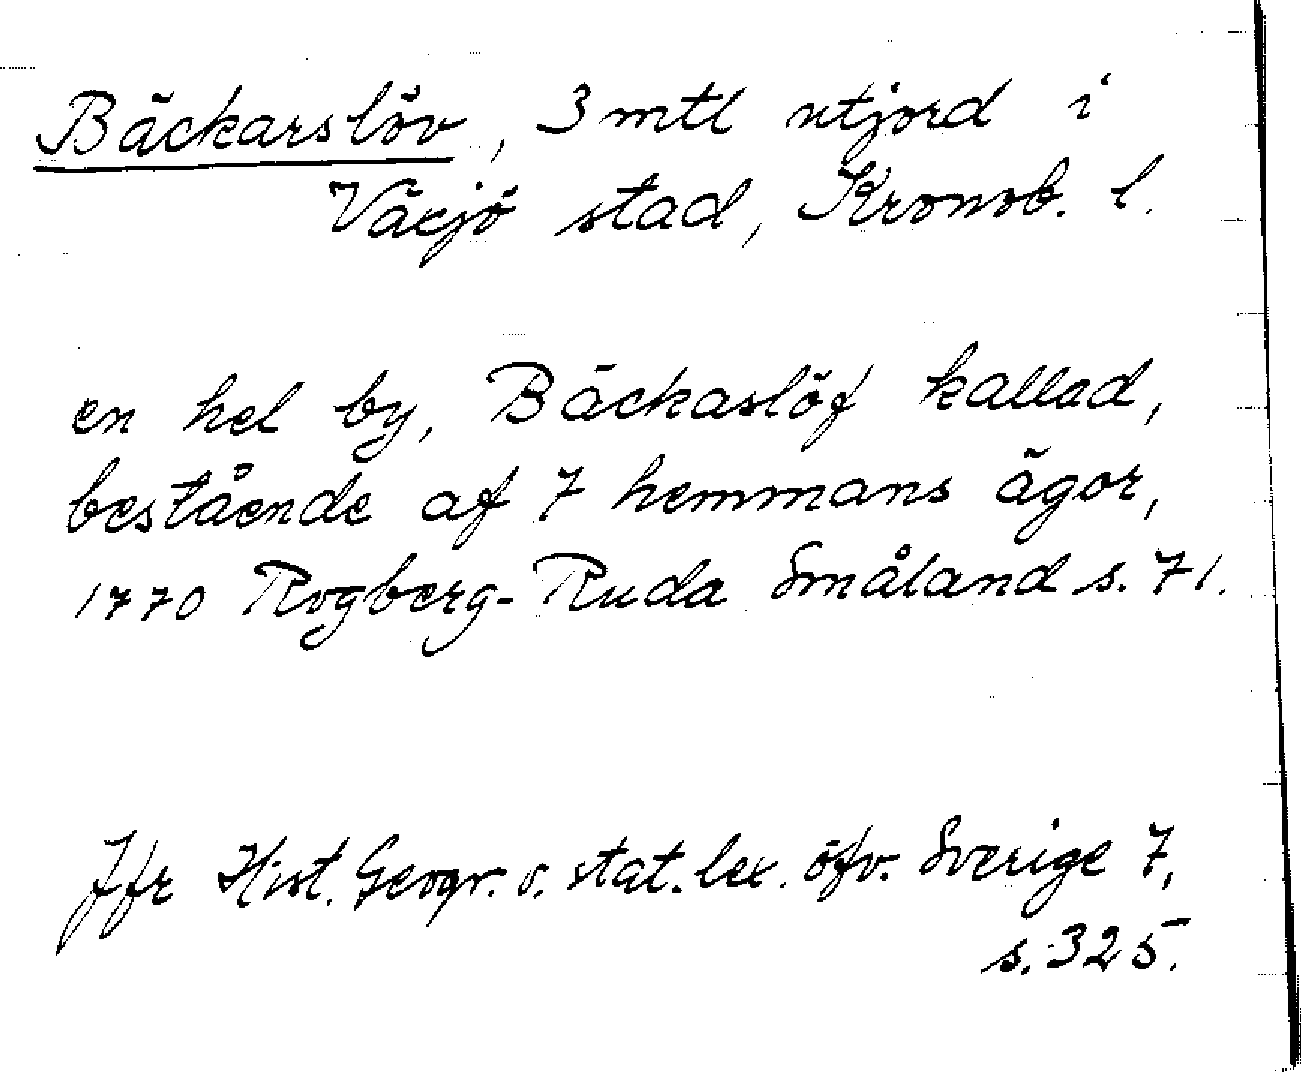 Bäckarslöv, 3 mtl utjord i
Växjö stad, Kronob. l.
en hel by, Bäckaslöf kallad,
bestående af 7 hemmans ägor,
1770 Rogberg-Ruda Småland s. 71.
Jfr Hist. Geogr. o. stat. lex. öfv. Sverige 7,
s. 325.